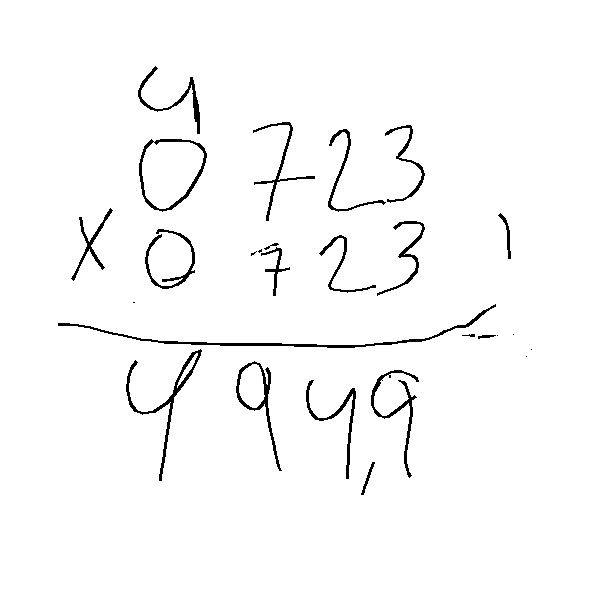 4
0723
x 0723
4949